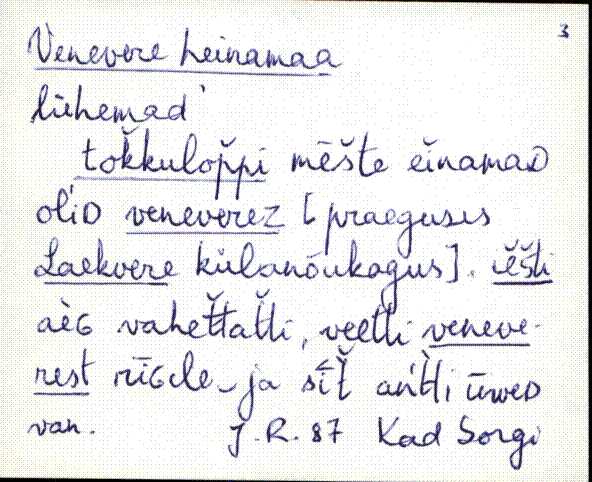 3
Venevere heinamaa
lühemad
tok̆kulop̆pi mēšte eĭnamaD
oĺiD venevereZ [praeguses
Laekvere külanõukogus].
aèG vaheťtaťti, veetti veneve-
rest rīGile ja siťť ańtti ūweD
van. J.R. 87 Kad Sorgi